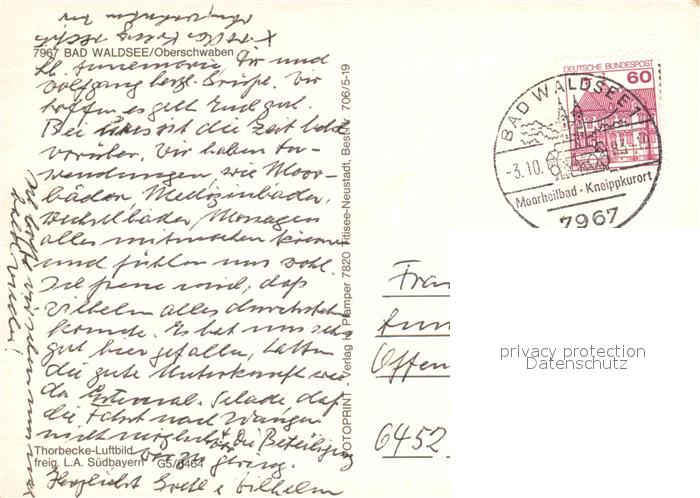 7967 BAD WALDSEE/Oberschwaben
Lb. Annemarie Dir und
Wolfgang herzl. Grüße. Wir
hoffen es geht Euch gut.
Bei uns ist die Zeit bald
vorüber. Wir haben An-
wendungen wie Moor-
bäder, Medizinbäder,
Wechselbäder, Massagen
alles mitmachen können
und fühlen uns wohl.
Ich freue mich, daß
Wilhelm alles durchstehen
konnte. Es hat uns sehr
gut hier gefallen, hatten
die gute Unterkunft wie
da
Schade daß
die Fahrt nach Wangen
nicht möglich die Beteiligung
war zu gering.
Herzlichst Gretl & Wilhelm
Thorbecke-Luftbild
freig. L.A. Südbayern G5/8464
FOTOPRINT - Verlag H. Pfamper 7820 Titisee-Neustadt, Bestnr. 706/5-19
DEUTSCHE BUNDESPOST
60
BAD WALDSEE 1
-3.10.
Moorheilbad · Kneippkurort
7967
Frau
Offen
6452
privacy protection
Datenschutz